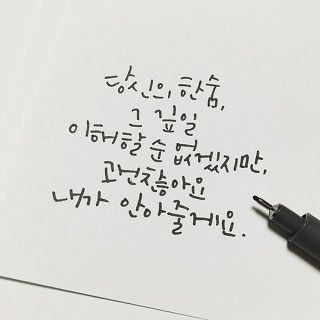 당신의 한숨,
그 깊일
이해할 순 없겠지만,
괜찮아요
내가 안아줄게요.